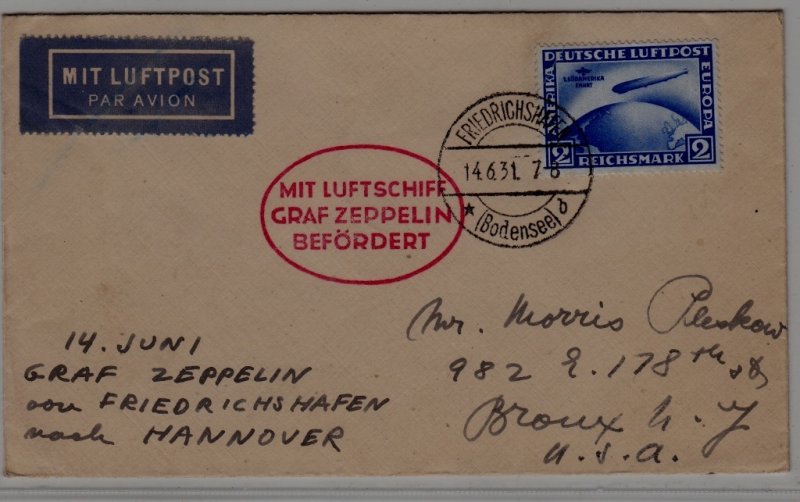 MIT LUFTPOST
PAR AVION
DEUTSCHE LUFTPOST
1. SÜDAMERIKA
FAHRT
AMERIKA
EUROPA
2 REICHSMARK 2
FRIEDRICHSHAFEN
14.6.31. 7-8
★ (Bodensee) d
MIT LUFTSCHIFF
GRAF ZEPPELIN
BEFÖRDERT
14. JUNI
GRAF ZEPPELIN
von FRIEDRICHSHAFEN
nach HANNOVER
Mr. Morris Pleskow
982 E. 178th st
Bronx N. Y
U.S.A.